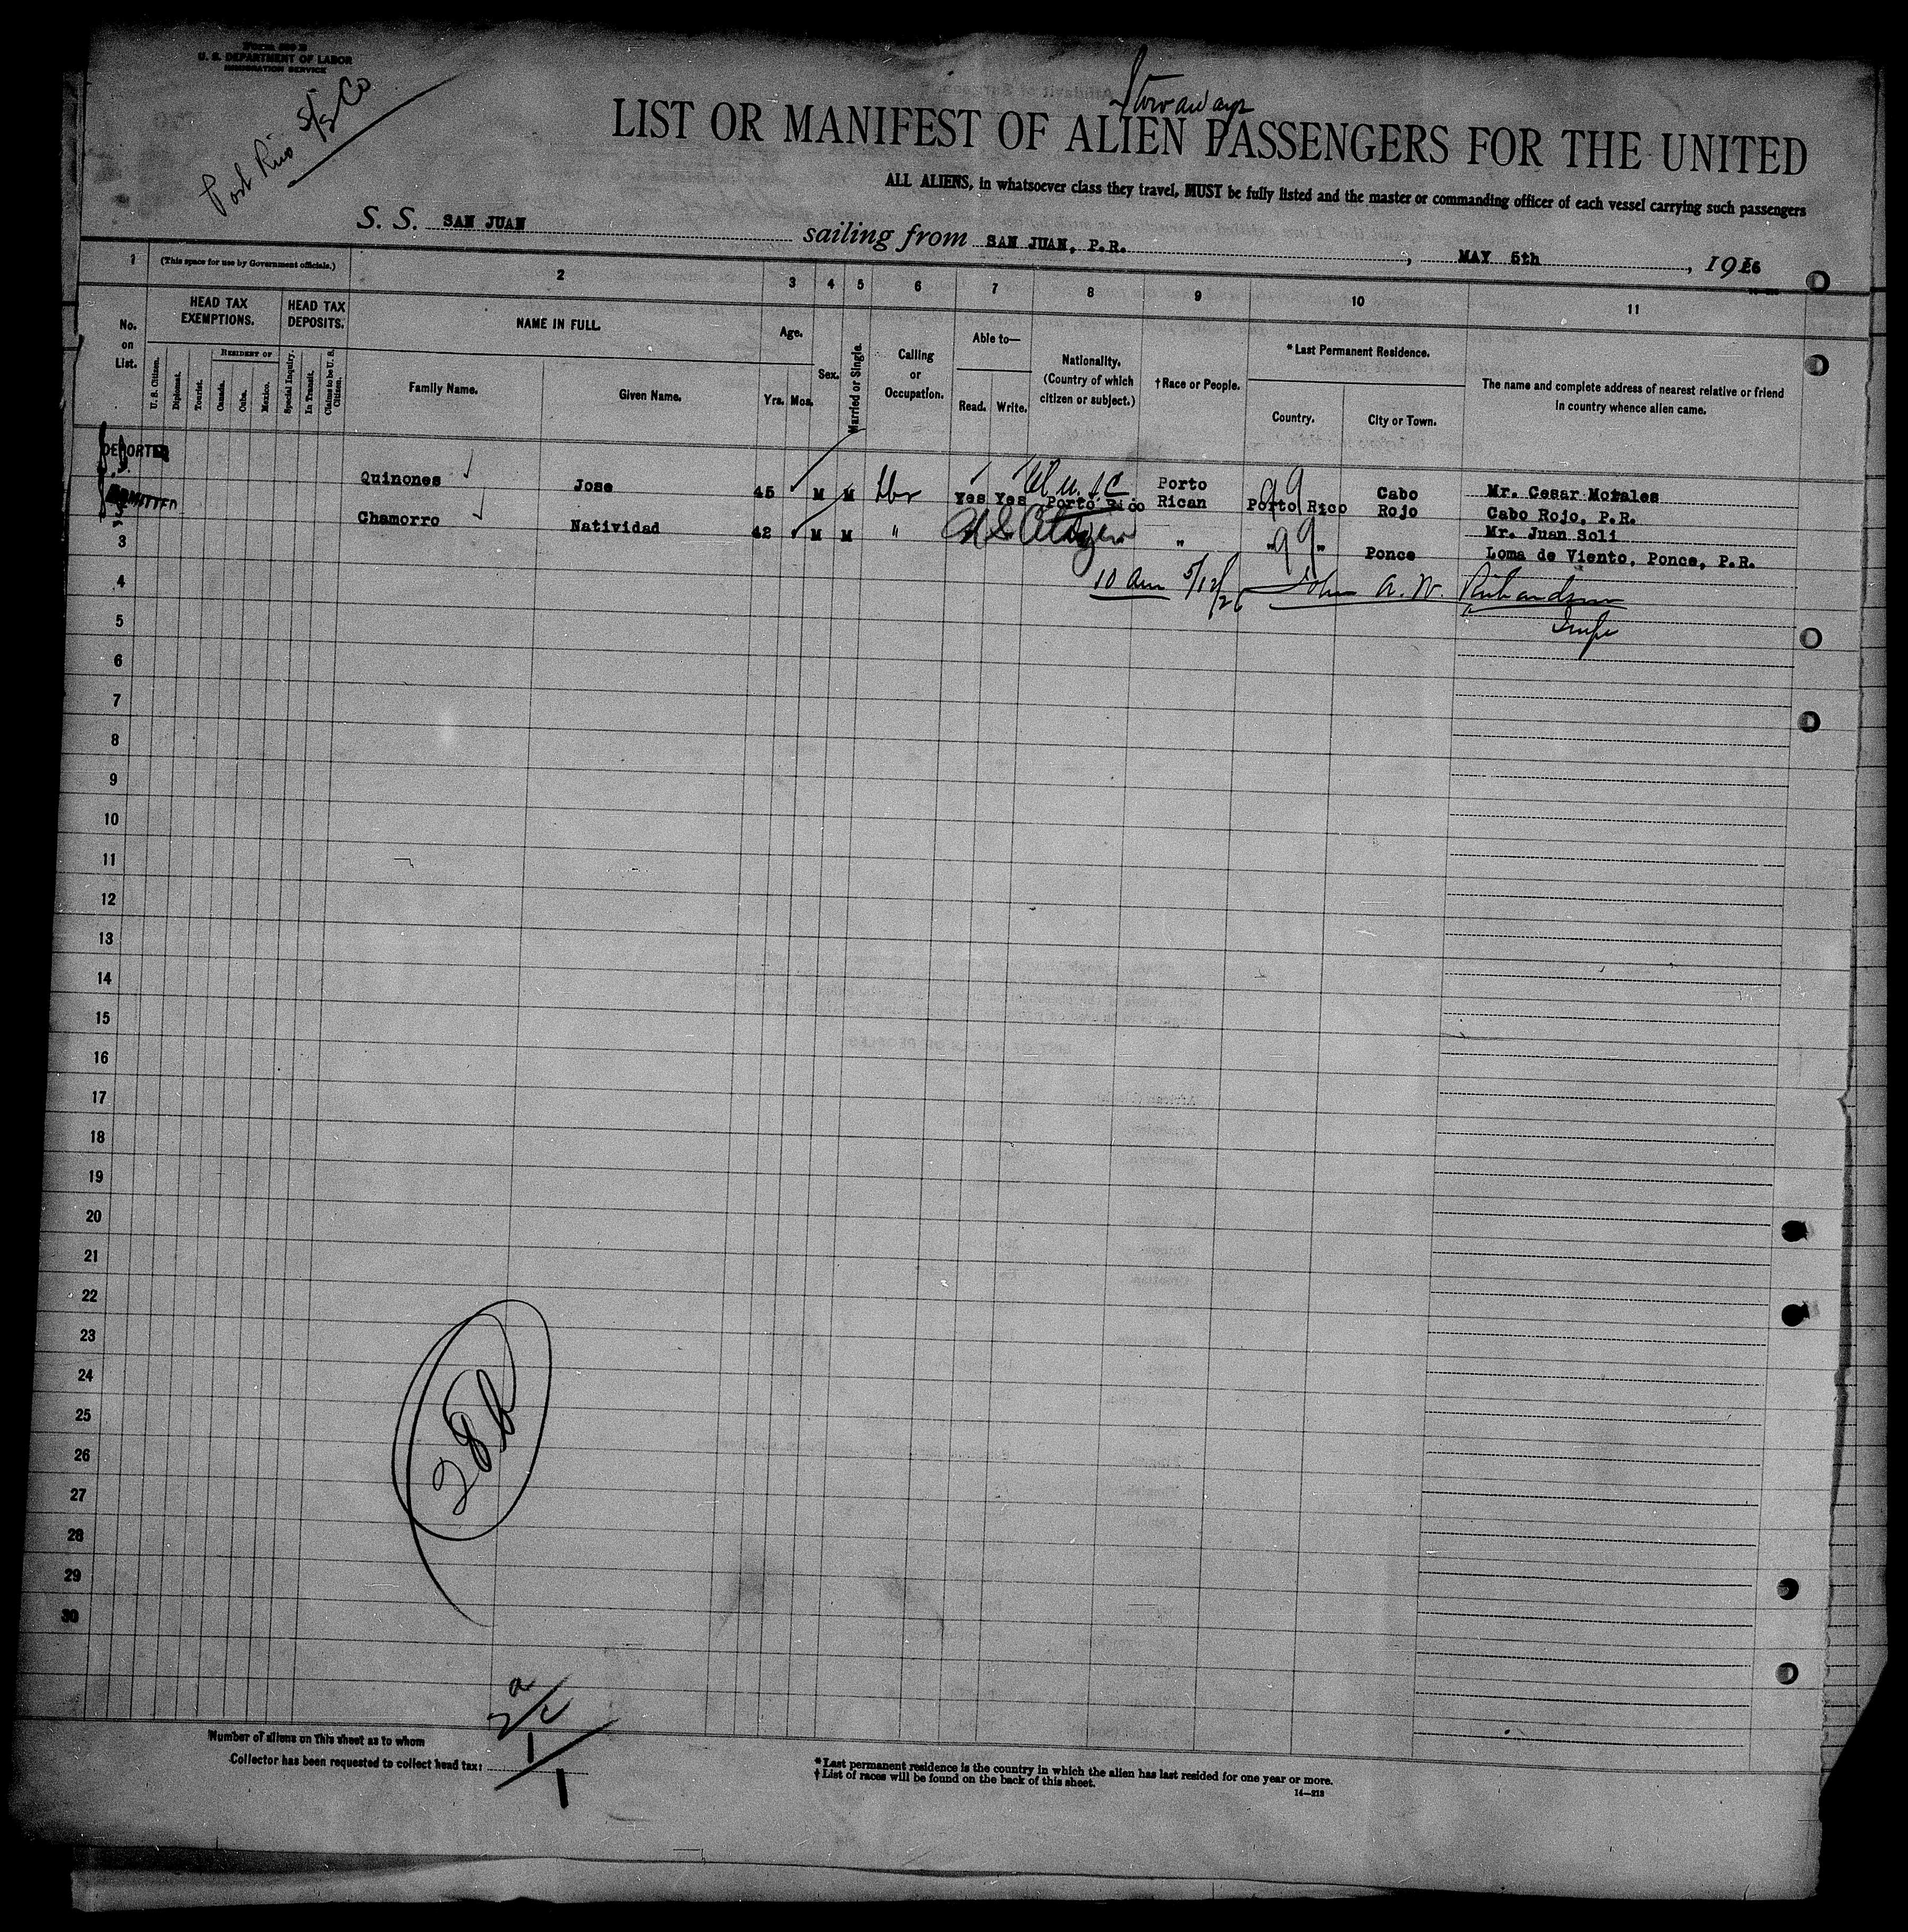 Form 500 B
U. S. DEPARTMENT OF LABOR
IMMIGRATION SERVICE
Port Rico S/S Co
Stowaways
LIST OR MANIFEST OF ALIEN PASSENGERS FOR THE UNITED
ALL ALIENS, in whatsoever class they travel, MUST be fully listed and the master or commanding officer of each vessel carrying such passengers
S. S. SAN JUAN sailing from SAN JUAN, P.R. , MAY 5th , 1926
1 (This space for use by Government officials.) 2 3 4 5 6 7 8 9 10 11
No. on List.
HEAD TAX EXEMPTIONS.
HEAD TAX DEPOSITS.
RESIDENT OF
U. S. Citizen.
Diplomat.
Tourist.
Canada.
Cuba.
Mexico.
Special Inquiry.
In Transit.
Claims to be U. S. Citizen.
NAME IN FULL.
Family Name.
Given Name.
Age.
Yrs. Mos.
Sex.
Married or Single.
Calling or Occupation.
Able to—
Read. Write.
Nationality. (Country of which citizen or subject.)
†Race or People.
*Last Permanent Residence.
Country.
City or Town.
The name and complete address of nearest relative or friend in country whence alien came.
DEPORTED
Quinones Jose 45 M M Lbr Yes Yes Porto Rico Porto Rican Porto Rico Cabo Rojo Mr. Cesar Morales
Cabo Rojo, P.R.
ADMITTED
Chamorro Natividad 42 M M " U S Citizen " " " Ponce Mr. Juan Soli
Loma de Viento, Ponce, P.R.
3
10 am 5/12/26 John A. W. Richardson
Insp
4
5
6
7
8
9
10
11
12
13
14
15
16
17
18
19
20
21
22
23
24
25
26
27
28
29
30
Number of aliens on this sheet as to whom
Collector has been requested to collect head tax:
*Last permanent residence is the country in which the alien has last resided for one year or more.
†List of races will be found on the back of this sheet.
14—213